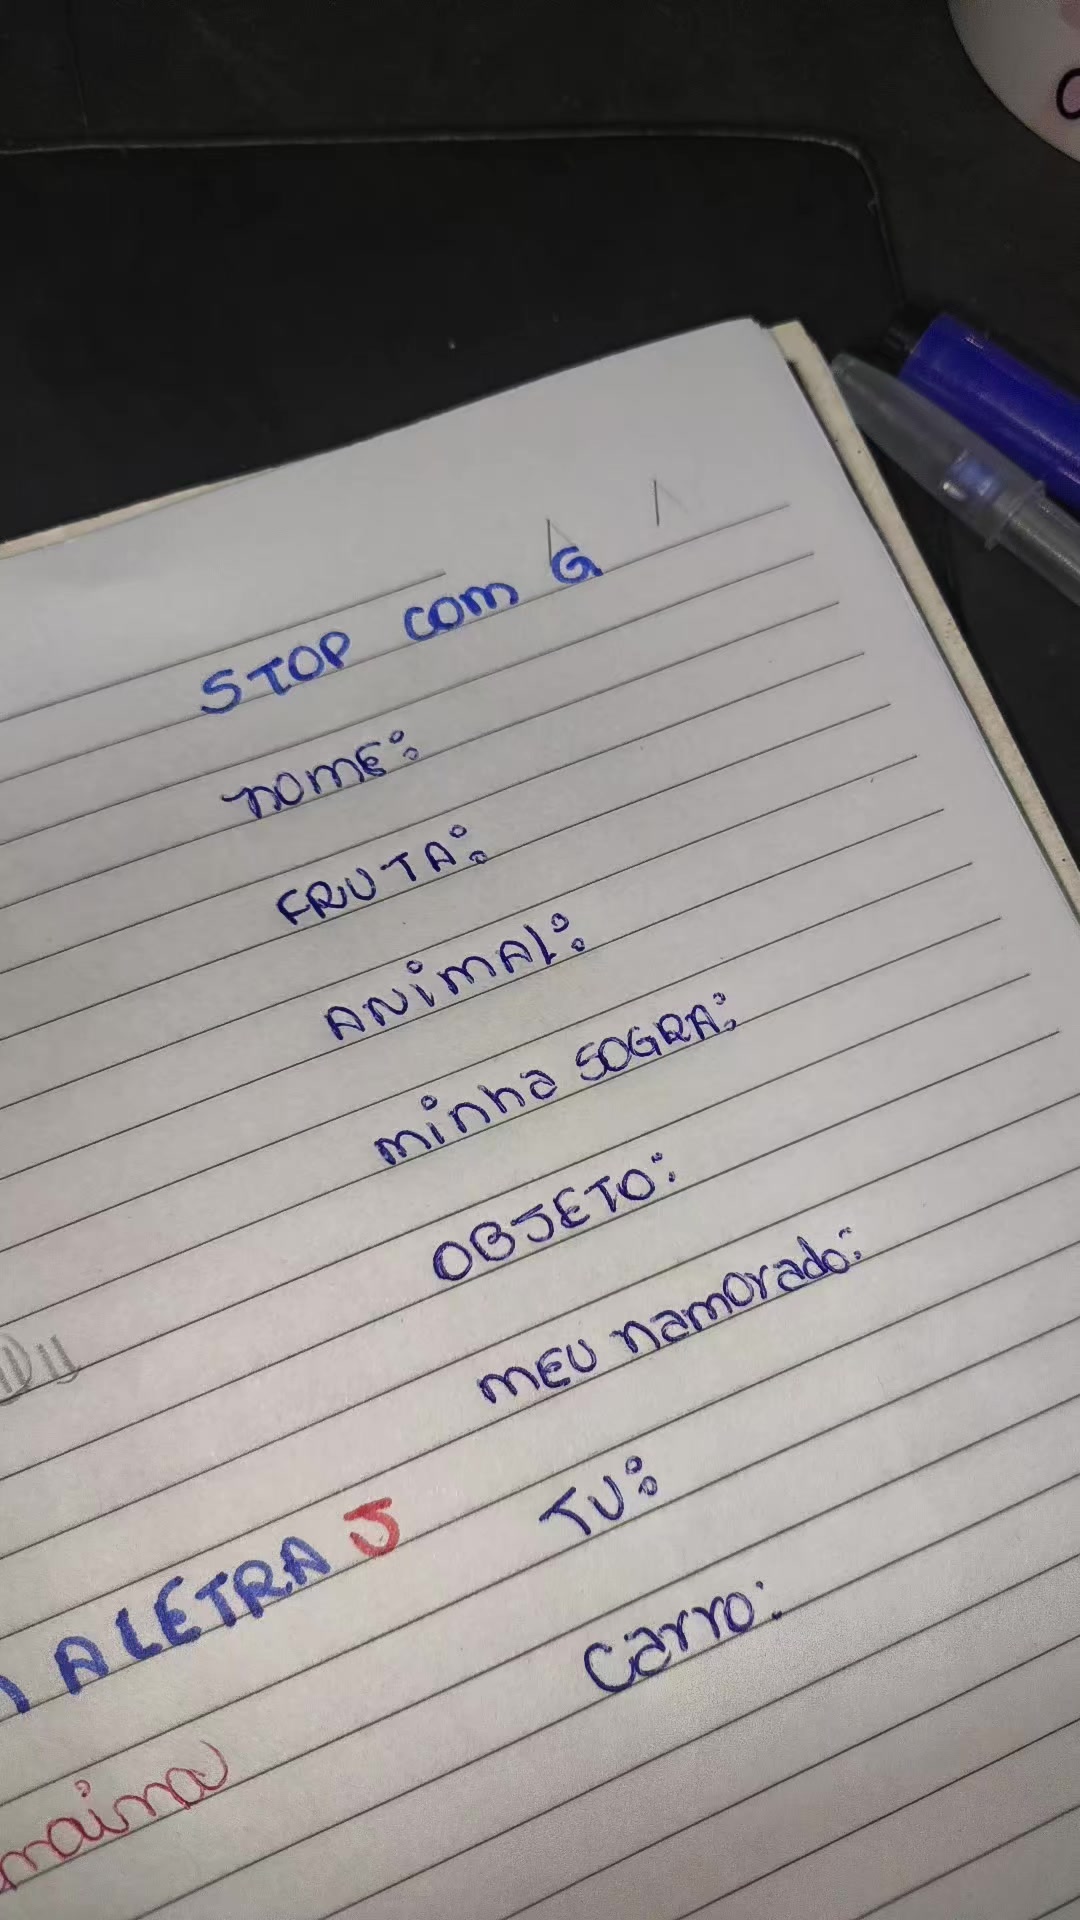 STOP com G
nome:
FRUTA:
ANiMAL:
minha SOGRA:
OBJETO:
MEU namorado:
TU:
A LETRA J
Carro: